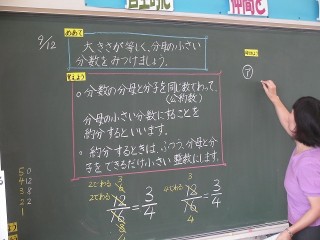 9/12
めあて
大きさが等しく、分母の小さい
分数をみつけましょう。
まとめ
○分数の分母と分子を同じ数でわって、
(公約数)
分母の小さい分数にすることを
約分するといいます。
○約分するときは、ふつう、分母と分
子をできるだけ小さい整数にします。
⑦
2でわる
2でわる
3
6
12
16
8
4
= 3/4
4でわる
3
12
16
4
= 3/4
50
412
38
22
1